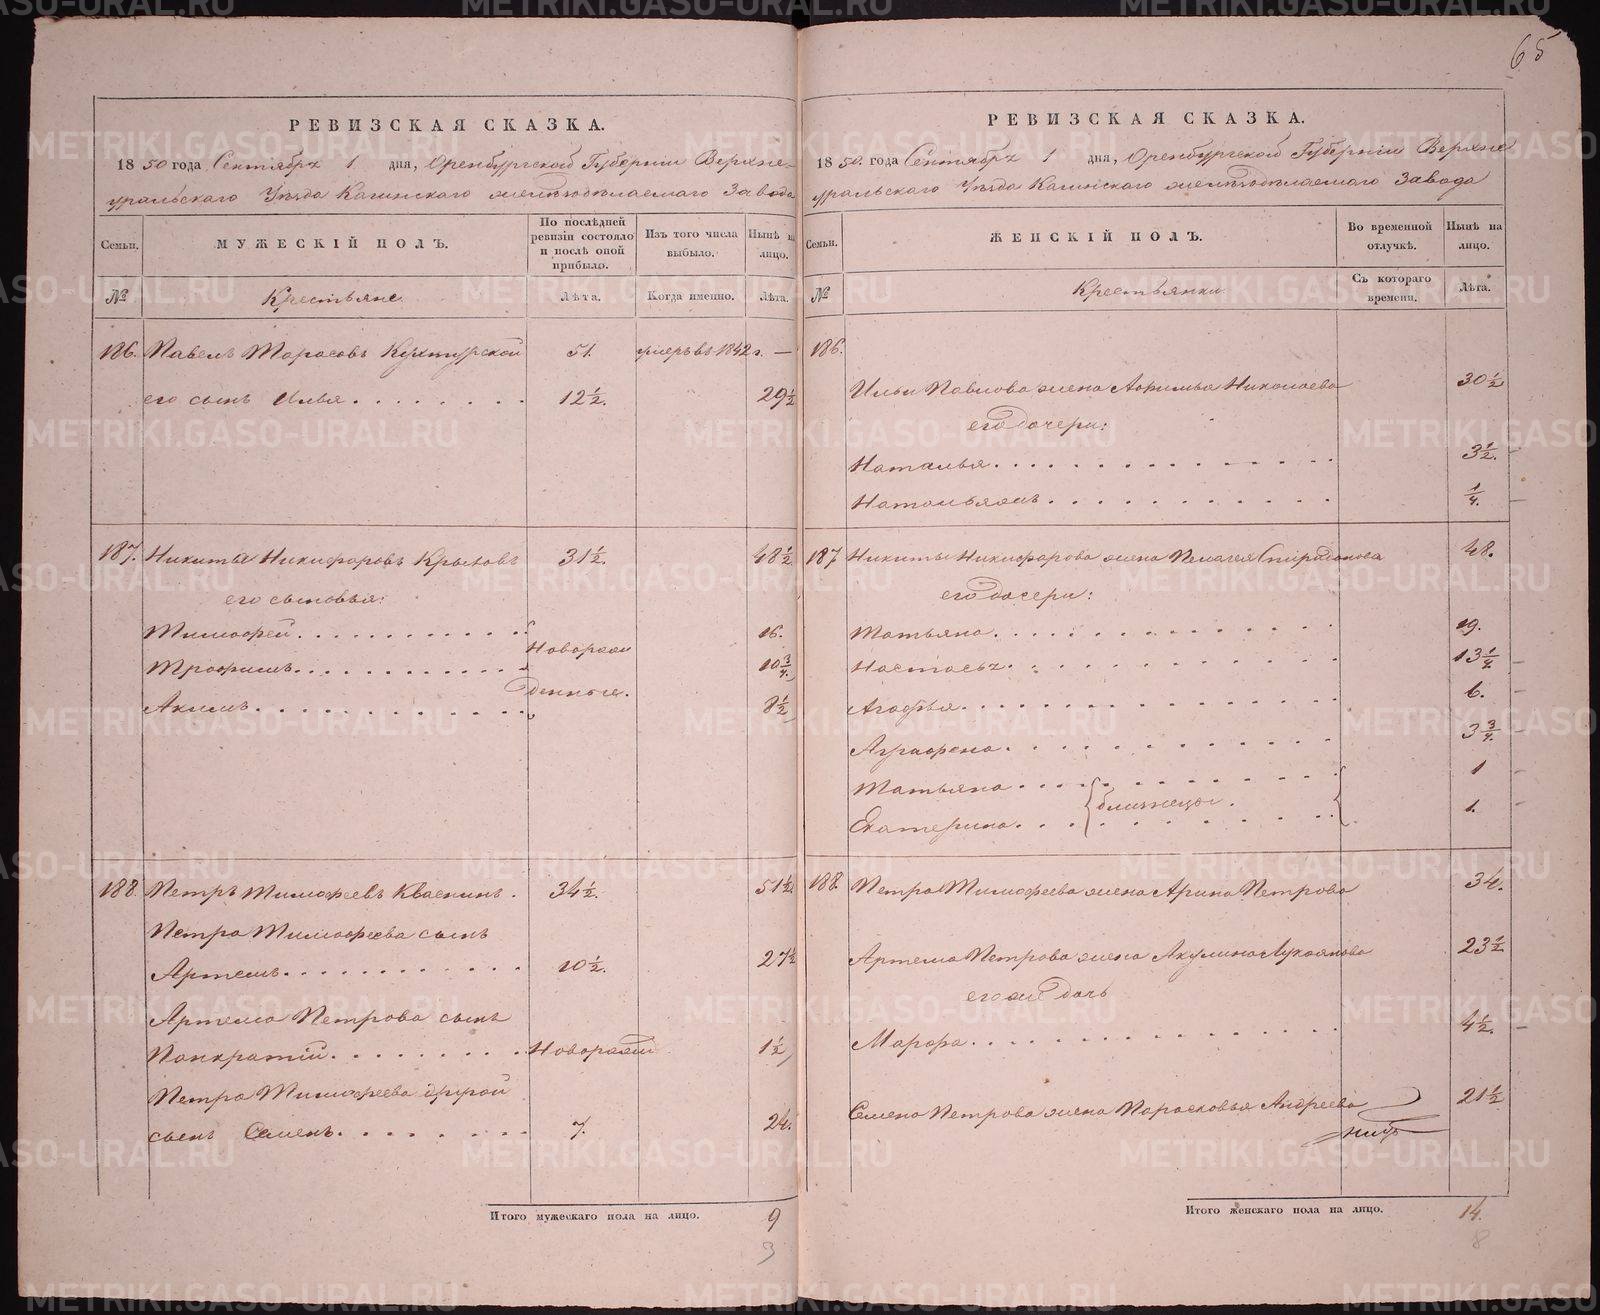 65
РЕВИЗСКАЯ СКАЗКА.
1850 года Сентября 1 дня, Оренбургской Губернии Верхне-
уральскаго Уезда Кагинскаго железоделаемаго Завода
Семьи.
МУЖЕСКІЙ ПОЛЪ.
По послѣдней ревизіи состояло и послѣ оной прибыло.
Изъ того числа выбыло.
Нынѣ на лицо.
№
Крестьяне
Лѣта.
Когда именно.
Лѣта.
186. Павелъ Тарасовъ 51. умеръ въ 1842 г. —
его сынъ Илья 12½. 29½
187. Никита Никифоровъ 31½. 48½
его сыновья:
Тимофей 16.
Новорож
Трофимъ 10¾.
денные.
Акимъ 8½
188. Петръ Тимофеевъ Квасникъ. 34½. 51½
Петра Тимофеева сынъ
Артемъ 10½. 27½
Артема Петрова сынъ
Панкратій Новорожд 1½
Петра Тимофеева другой
сынъ Семенъ 7. 24.
Итого мужескаго пола на лицо. 9
3
РЕВИЗСКАЯ СКАЗКА.
1850 года Сентября 1 дня, Оренбургской Губерніи Верхне
уральскаго Уезда Кагинскаго железоделаемаго Завода
Семьи.
ЖЕНСКІЙ ПОЛЪ.
Во временной отлучкѣ.
Нынѣ на лицо.
№
Крестьянки
Съ котораго времени.
Лѣта.
186.
Ильи Павлова жена Афимья Николаева 30½
его дочери:
Наталья 3½.
¼.
187 Никиты Никифорова жена Пелагея Спиридонова 48.
его дочери:
Татьяна 19.
Настасья 13¼
Агафья 6.
Аграфена 3¾
Татьяна 1
близнецы.
Екатерина 1.
188. Петра Тимофеева жена Арина Петрова 34.
Артема Петрова жена Акулина Лукоянова 23½
его же дочь
Марфа 4½.
Семена Петрова жена Парасковья Андреева 21½
Итого женскаго пола на лицо. 14.
8
METRIKI.GASO-URAL.RU